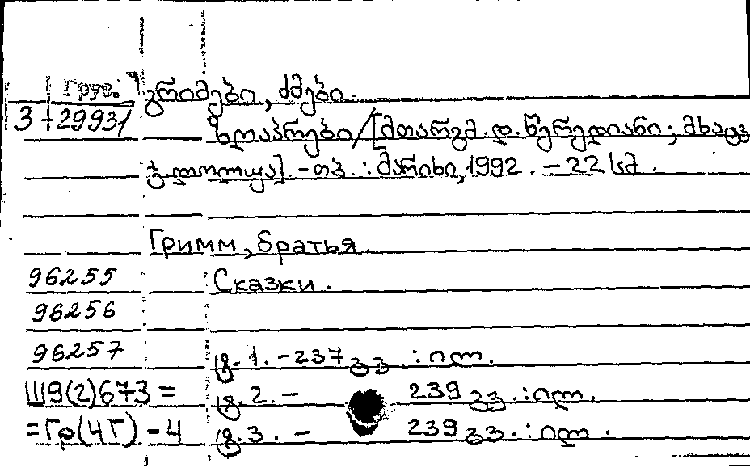 Груз.
გრიმები, ძმები.
3-29931
ზღაპრები/[მთარგმ. დ. წერედიანი; მხატვ.
ზ. დოლოყა]. -თბ. : მარიხი, 1992. - 22 სმ.
Гримм, братья
96255 Сказки.
96256
96257 წ. 1. -237 გვ. : ილ.
Ш9(2)673 = წ. 2. - 239 გვ. : ილ.
=Гр(4Г) - 4 წ. 3. - 239 გვ. : ილ.